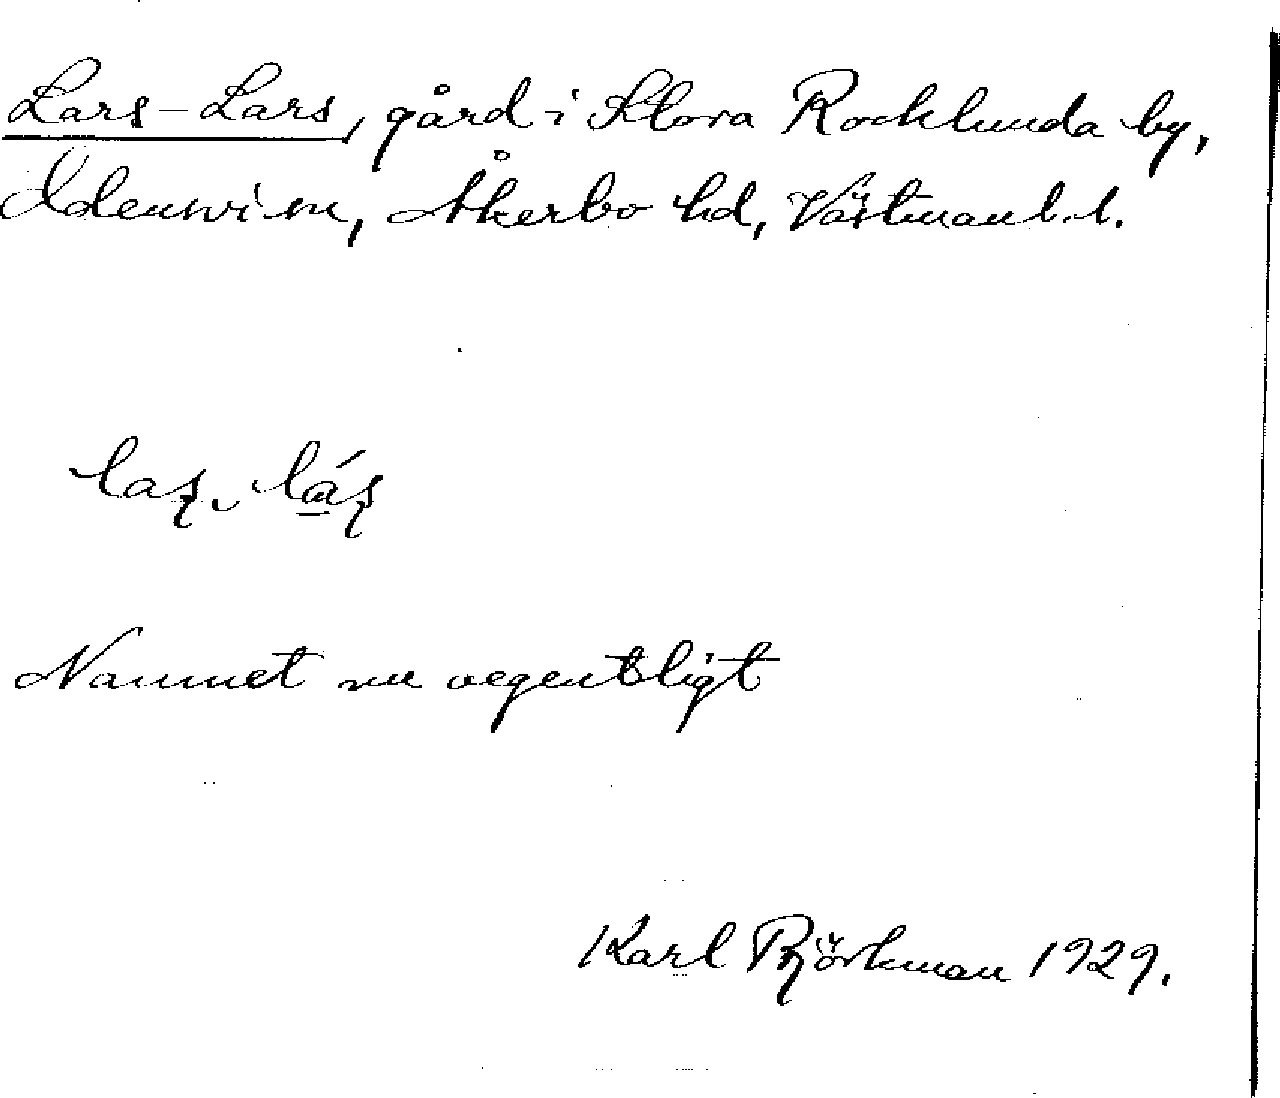 Lars-Lars, gård i Stora Rocklunda by,
Odensvi sn, Åkerbo hd, Västmanl. l.
las lás
Namnet nu oegentligt
Karl Björkman 1929.